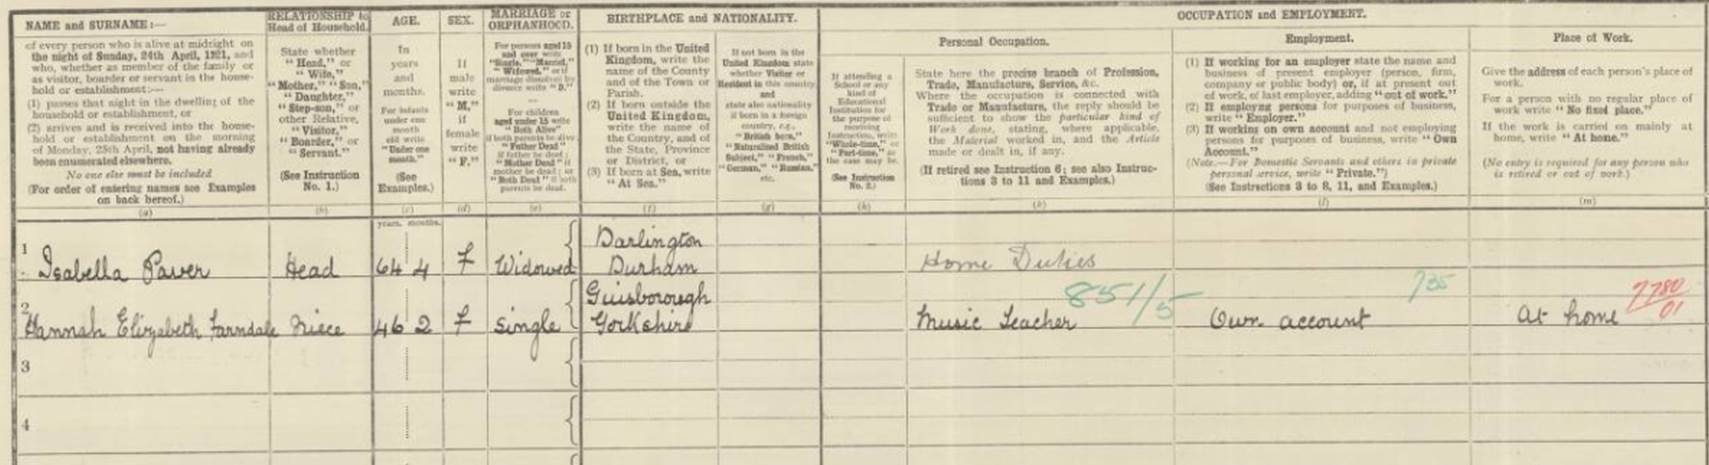 NAME and SURNAME:—
of every person who is alive at midnight on
the night of Sunday, 24th April, 1921, and
who, whether as member of the family or
as visitor, boarder or servant in the house-
hold or establishment:—
(1) passes that night in the dwelling of the
household or establishment, or
(2) arrives and is received into the house-
hold or establishment on the morning
of Monday, 25th April, not having already
been enumerated elsewhere.
No one else must be included
(For order of entering names see Examples
on back hereof.)
(a)
RELATIONSHIP to
Head of Household.
State whether
"Head," or
"Wife,"
"Mother," "Son,"
"Daughter,"
"Step-son," or
other Relative,
"Visitor,"
"Boarder," or
"Servant."
(See Instruction
No. 1.)
(b)
AGE.
In
years
and
months.
For infants
under one
month
old write
"Under one
month."
(See
Examples.)
(c)
SEX.
If
male
write
"M,"
if
female
write
"F."
(d)
MARRIAGE or
ORPHANHOOD.
For persons aged 15
and over write
"Single," "Married,"
"Widowed," or if
marriage dissolved by
divorce write "D."
For children
aged under 15 write
"Both Alive"
if both parents be alive
"Father Dead"
if father be dead;
"Mother Dead" if
mother be dead; or
"Both Dead" if both
parents be dead.
(e)
BIRTHPLACE and NATIONALITY.
(1) If born in the United
Kingdom, write the
name of the County
and of the Town or
Parish.
(2) If born outside the
United Kingdom,
write the name of
the Country, and of
the State, Province
or District, or
(3) If born at Sea, write
"At Sea."
(f)
If not born in the
United Kingdom state
whether Visitor or
Resident in this country
and
state also nationality
if born in a foreign
country, e.g.,
"British born,"
"Naturalised British
Subject," "French,"
"German," "Russian,"
etc.
(g)
If attending a
School or any
kind of
Educational
Institution for
the purpose of
receiving
Instruction, write
"Whole-time," or
"Part-time," as
the case may be.
(See Instruction
No. 2.)
(h)
OCCUPATION and EMPLOYMENT.
Personal Occupation.
State here the precise branch of Profession,
Trade, Manufacture, Service, &c.
Where the occupation is connected with
Trade or Manufacture, the reply should be
sufficient to show the particular kind of
Work done, stating, where applicable,
the Material worked in, and the Article
made or dealt in, if any.
(If retired see Instruction 6; see also Instruc-
tions 3 to 11 and Examples.)
(k)
Employment.
(1) If working for an employer state the name and
business of present employer (person, firm,
company or public body) or, if at present out
of work, of last employer, adding "out of work."
(2) If employing persons for purposes of business,
write "Employer."
(3) If working on own account and not employing
persons for purposes of business, write "Own
Account."
(Note.—For Domestic Servants and others in private
personal service, write "Private.")
(See Instructions 3 to 8, 11, and Examples.)
(l)
Place of Work.
Give the address of each person's place of
work.
For a person with no regular place of
work write "No fixed place."
If the work is carried on mainly at
home, write "At home."
(No entry is required for any person who
is retired or out of work.)
(m)
years. months.
1 Isabella Paver Head 64 4 F Widowed Darlington
Durham Home Duties
2 Hannah Elizabeth Farndale Niece 46 2 F Single Guisborough
Yorkshire Music Teacher 851/5 Own account 735 At home 7780/01
3
4